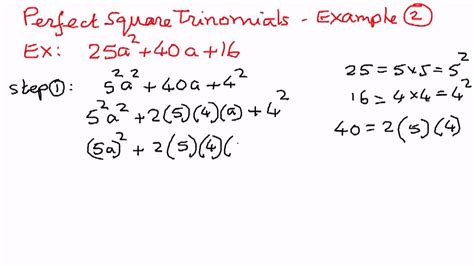 Perfect Square Trinomials - Example ②
Ex: 25a² + 40a + 16
Step ①: 5²a² + 40a + 4²
5²a² + 2(5)(4)(a) + 4²
(5a)² + 2(5)(4)(
25 = 5×5 = 5²
16 = 4×4 = 4²
40 = 2(5)(4)